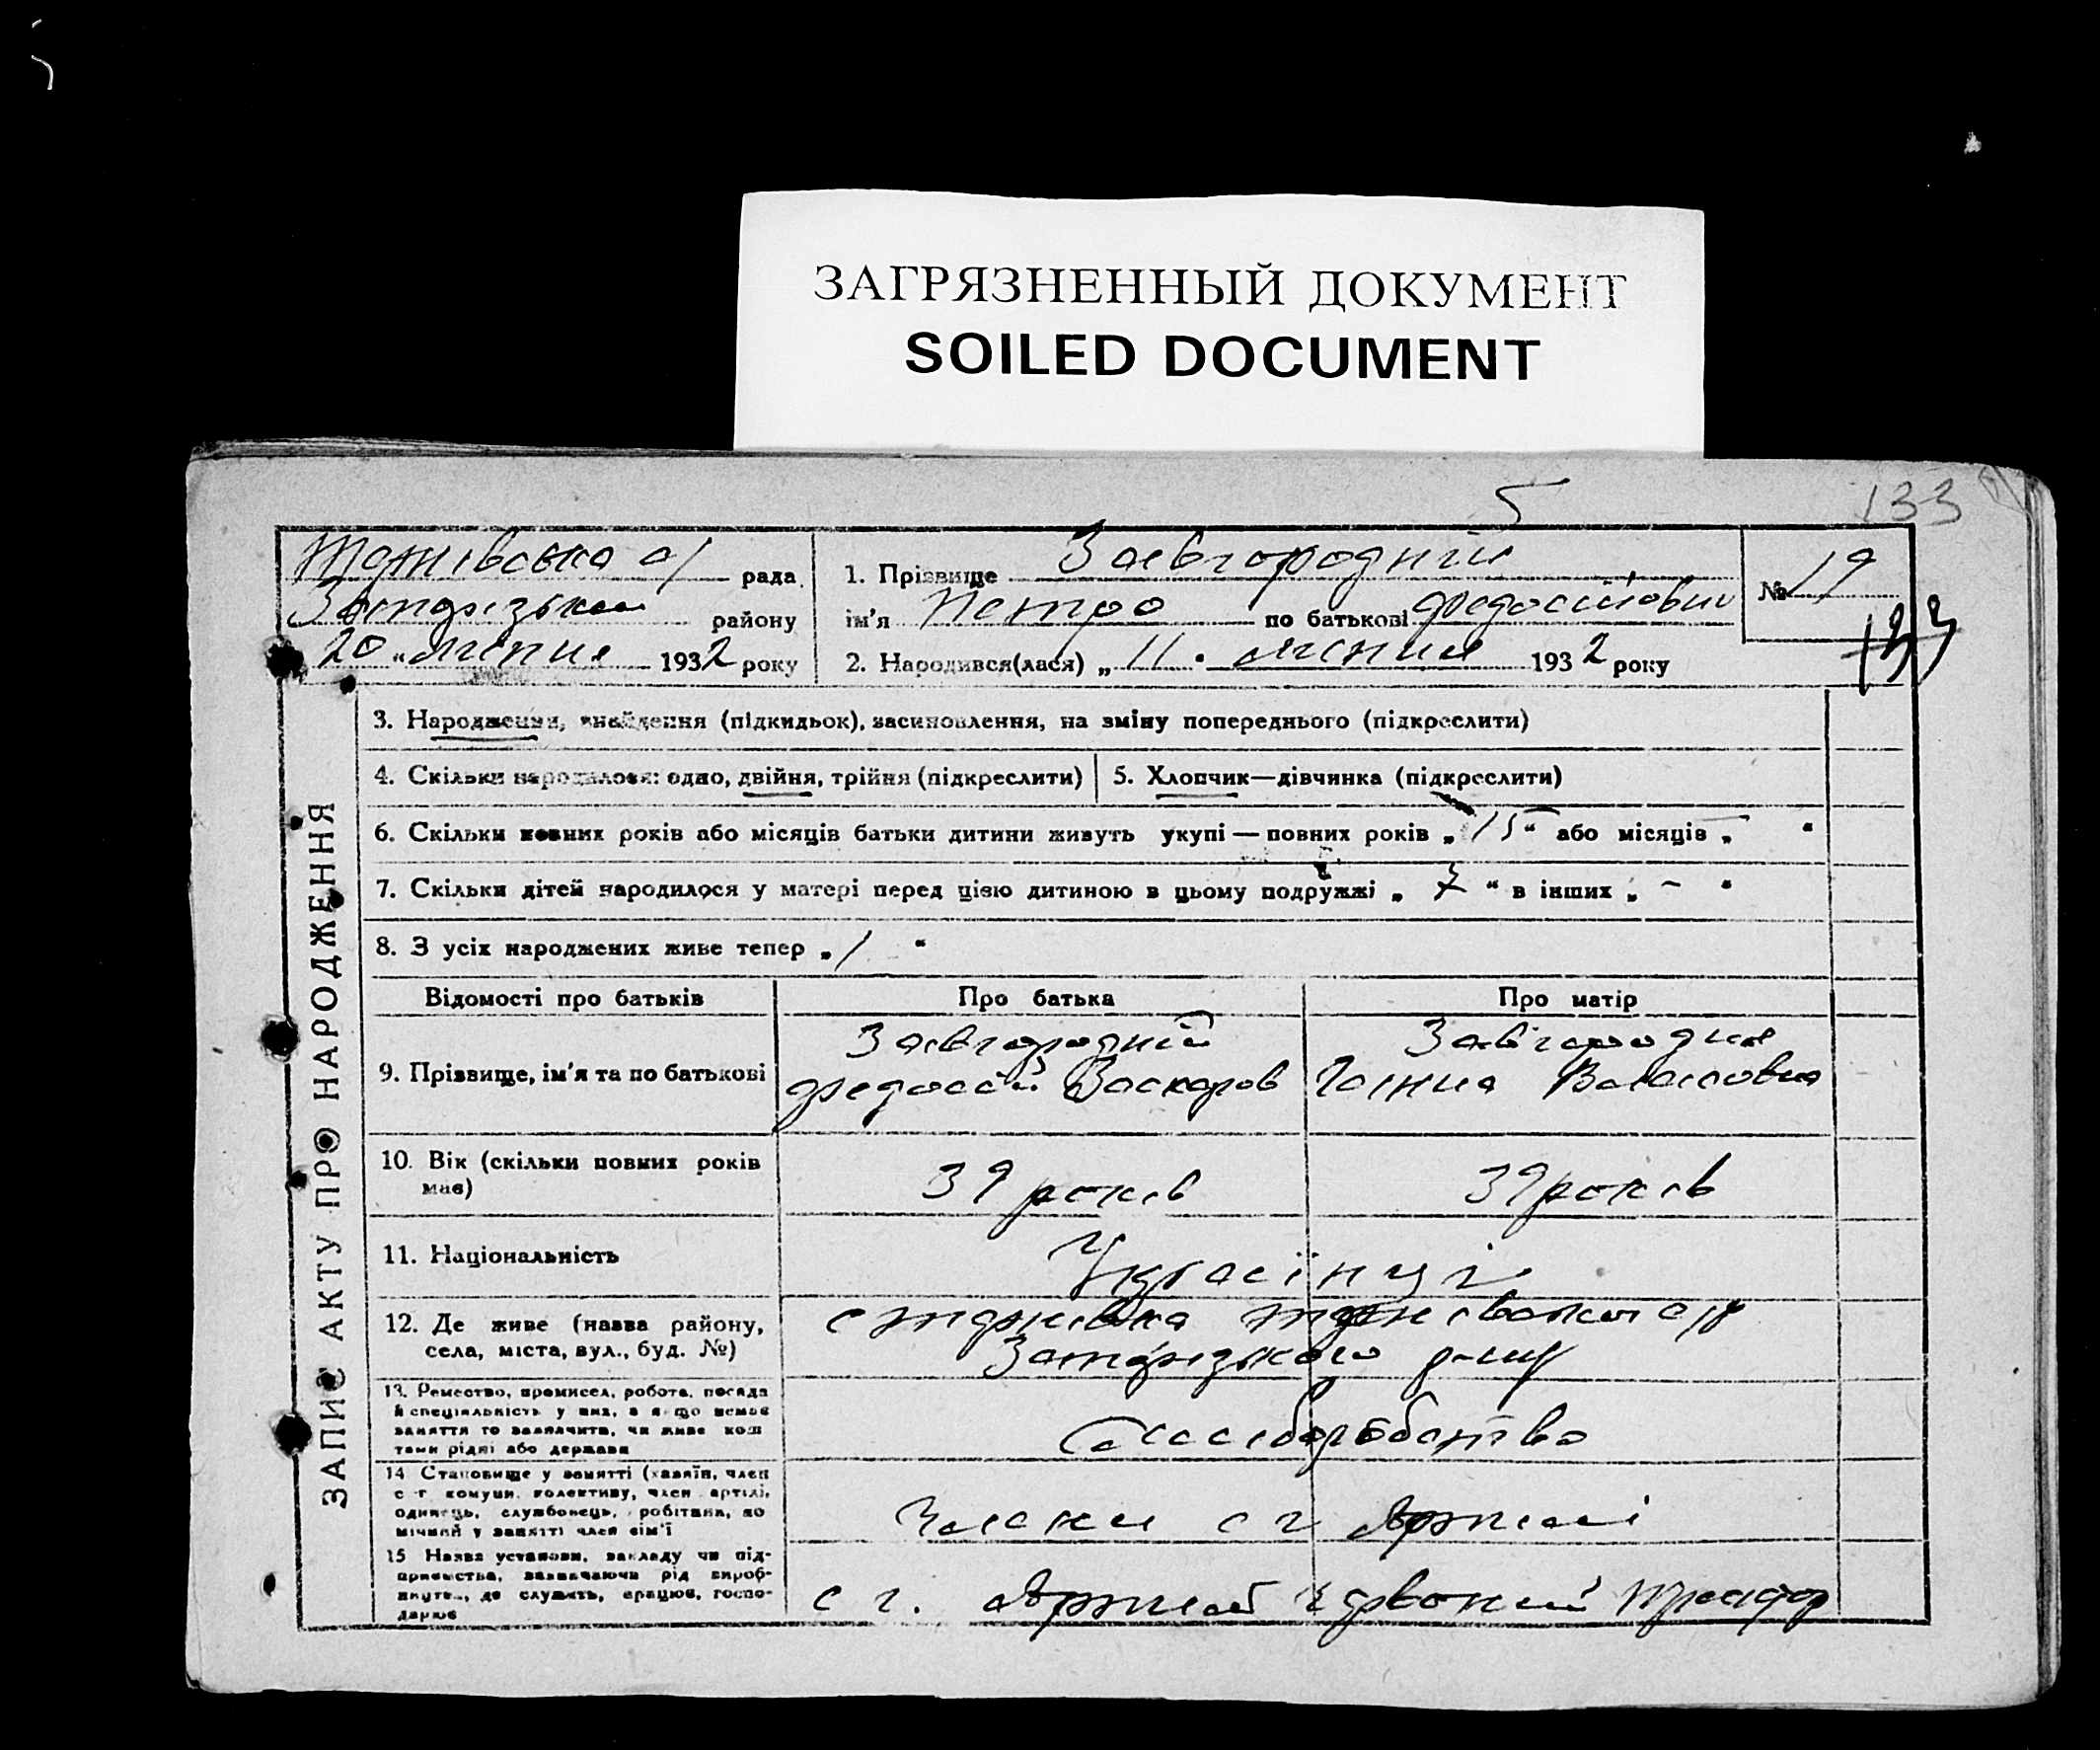 ЗАГРЯЗНЕННЫЙ ДОКУМЕНТ
SOILED DOCUMENT
133
рада
району
20 " липня 1932 року
1. Прізвище Завгородній
ім'я Петро по батькові
2. Народився(лася) „ 11 " липня 1932 року
№ 19
133
ЗАПИС АКТУ ПРО НАРОДЖЕННЯ
3. Народження, знайдення (підкидьок), засиновлення, на зміну попереднього (підкреслити)
4. Скільки народилося: одно, двійня, трійня (підкреслити)
5. Хлопчик—дівчинка (підкреслити)
6. Скільки повних років або місяців батьки дитини живуть укупі — повних років „ 15 " або місяців „ – "
7. Скільки дітей народилося у матері перед цією дитиною в цьому подружжі „ 7 " в інших „ – "
8. З усіх народжених живе тепер „ 1 "
Відомості про батьків
Про батька
Про матір
9. Прізвище, ім'я та по батькові
Завгородній
Федосій
Завгородня
Ганна Власовна
10. Вік (скільки повних років має)
39 років
39 років
11. Національність
Українці
12. Де живе (назва району,
села, міста, вул., буд. №)
13. Ремество, промисел, робота, посада
й спеціяльність у них, а якщо немає
заняття то зазначити, чи живе кош
тами рідні або держави
14 Становище у занятті (хазяїн, член
с-г комуни, колективу, член артілі,
одинець, службовець, робітник, до
мічний у занятті член сім'ї
Члени с г Артілі
15 Назва установи, закладу чи під-
приємства, зазначаючи рід вироб-
ництв, де служить, працює, госпо-
дарює
с г. Артіль Червоний Прапор